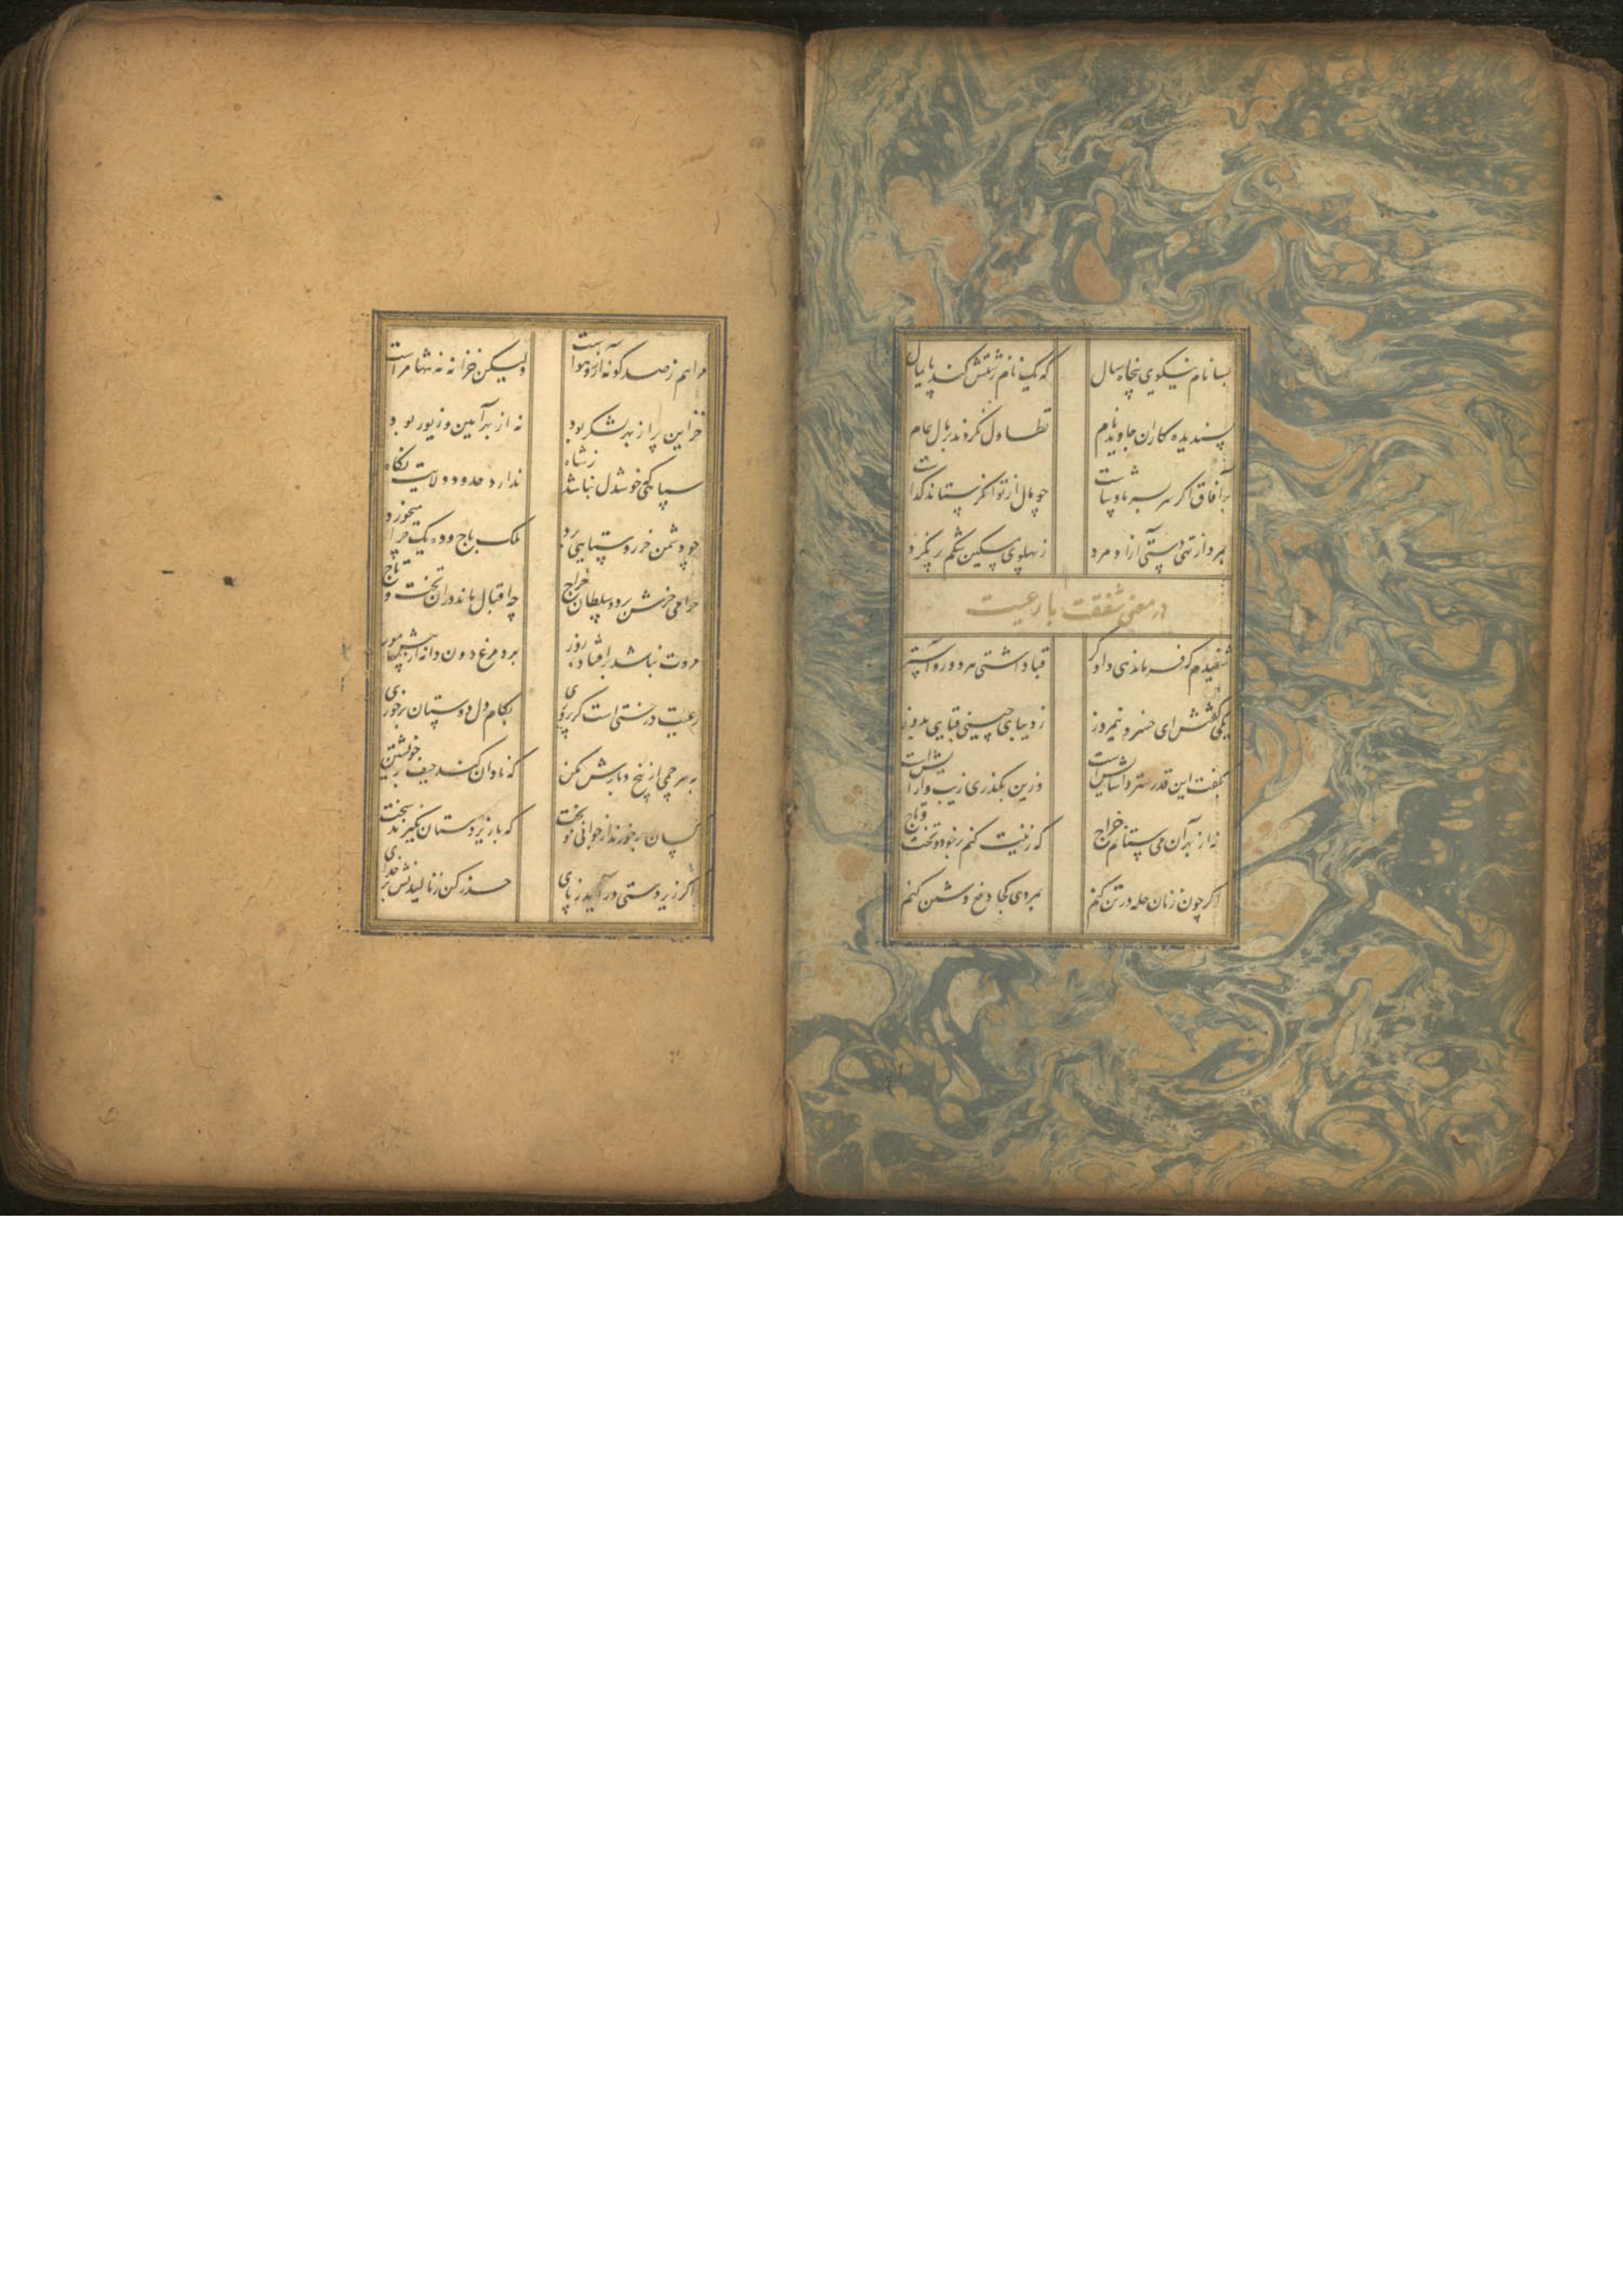 بسا نام نیکوی پنجاه سال که یک نام زشتش کند پایمال
پسندیده کاران جاوید نام تطاول نکردند بر مال عام
بر آفاق اگر سر بسر پادشاست چو مال از توانگر ستاند گداست
بمرد از تهی دستی آزاد مرد ز پهلوی مسکین شکم پر نکرد
در معنی شفقت با رعیت
شنیدم که فرماندهی دادگر قبا داشتی هر دو رو آستر
یکی گفتش ای خسرو نیمروز ز دیبای چینی قبایی بدوز
بگفت این قدر ستر و آسایش است وزین بگذری زیب و آرایش است
نه از بهر آن می ستانم خراج که زینت کنم بر خود و تخت و تاج
اگر چون زنان حله در تن کنم بمردی کجا دفع دشمن کنم
مرا هم ز صد گونه آز و هواست ولیکن خزانه نه تنها مراست
خزاین پر از بهر لشکر بود نه از بهر آیین و زیور بود
سپاهی که خوشدل نباشد ز شاه ندارد حدود ولایت نگاه
چو دشمن خر روستایی برد ملک باج و ده یک چرا میخورد
حرامی خرش برد و سلطان خراج چه اقبال ماند در آن تخت و تاج
مروت نباشد بر افتاده زور برد مرغ دون دانه از پیش مور
رعیت درختی است گر پروری بکام دل دوستان برخوری
به بی رحمی از بیخ و بارش مکن که نادان کند حیف بر خویشتن
کسان برخورند از جوانی و بخت که با زیردستان نگیرند سخت
اگر زیردستی درآید ز پای حذر کن ز نالیدنش بر خدای